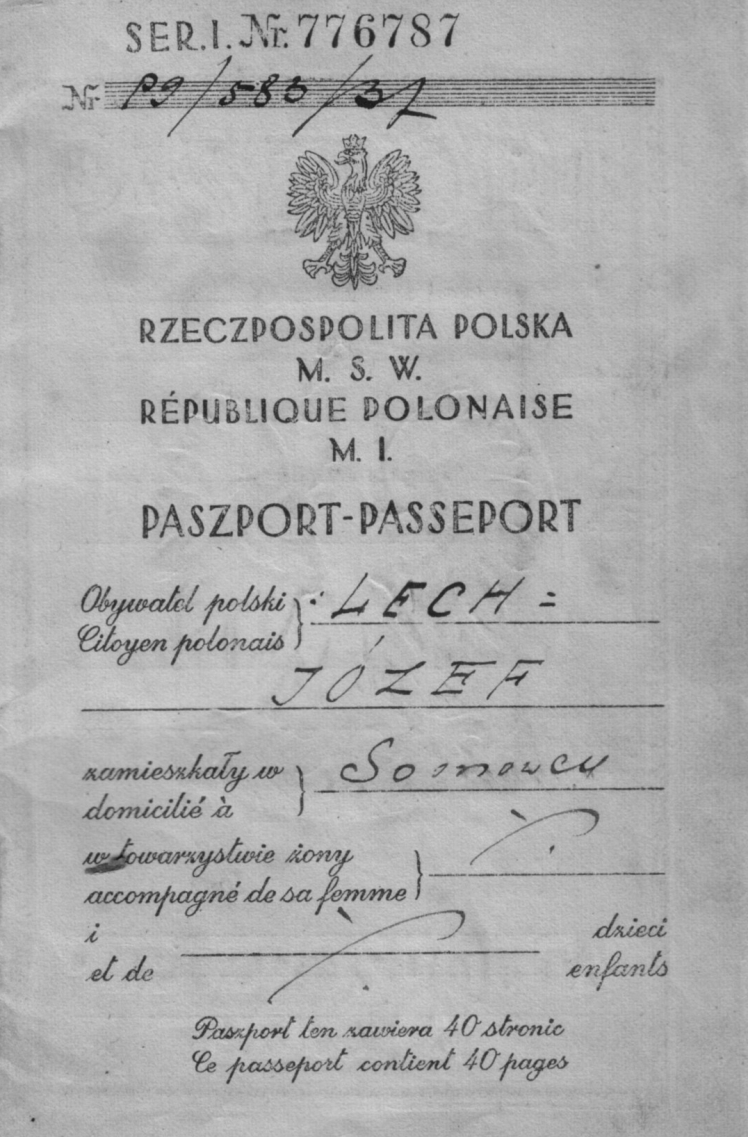 SER. I. Nr. 776787
Nr P9/583/37
RZECZPOSPOLITA POLSKA
M. S. W.
RÉPUBLIQUE POLONAISE
M. I.
PASZPORT-PASSEPORT
Obywatel polski
Citoyen polonais } LECH =
JÓZEF
zamieszkały w
domicilié à } Sosnowcu
w towarzystwie żony
accompagné de sa femme }
i dzieci
et de enfants
Paszport ten zawiera 40 stronic
Ce passeport contient 40 pages